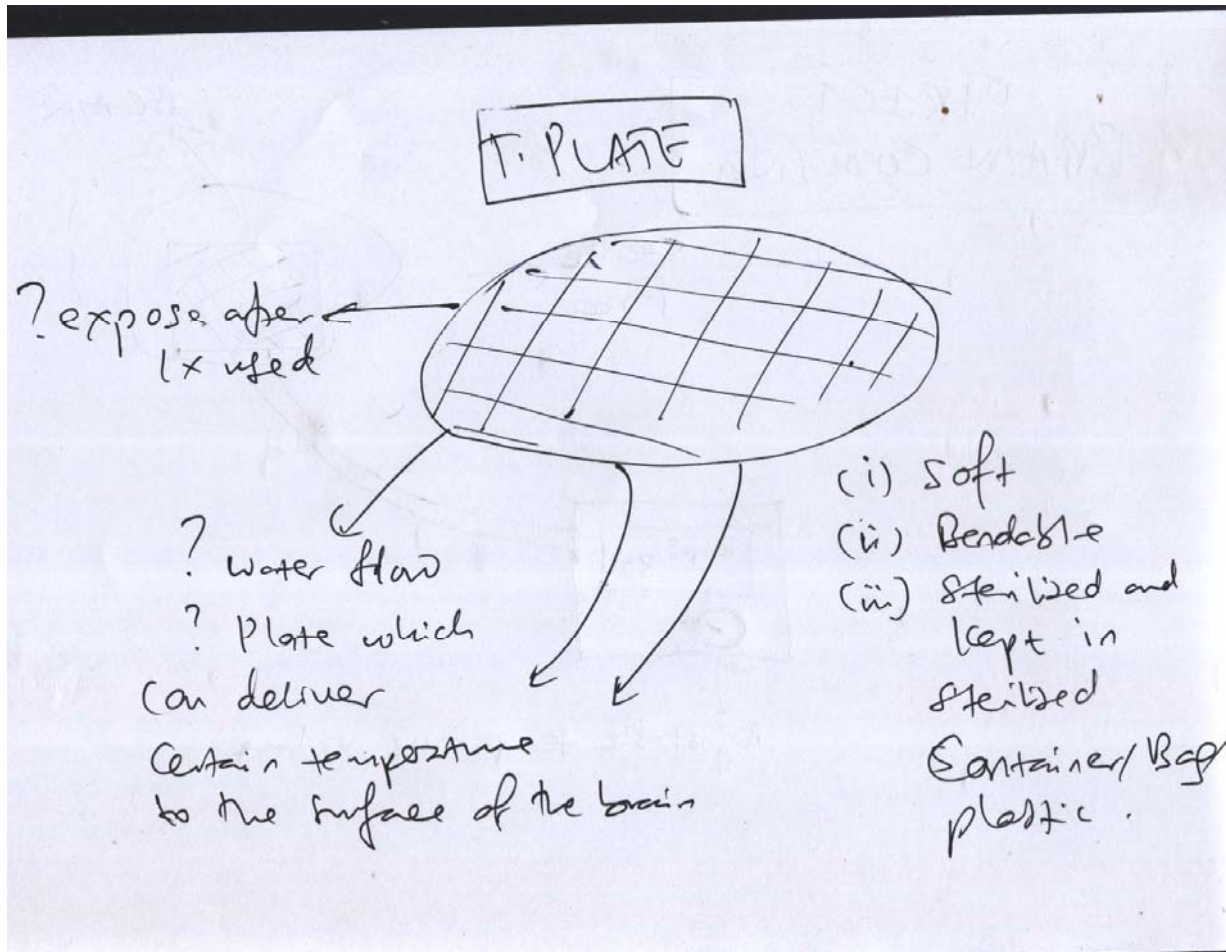 T. PLATE
? expose after
1x used
?
water flow
? Plate which
can deliver
certain temperature
to the surface of the brain
(i) Soft
(ii) Bendable
(iii) Sterilized and
kept in
sterilized
Container/Bag/
plastic.